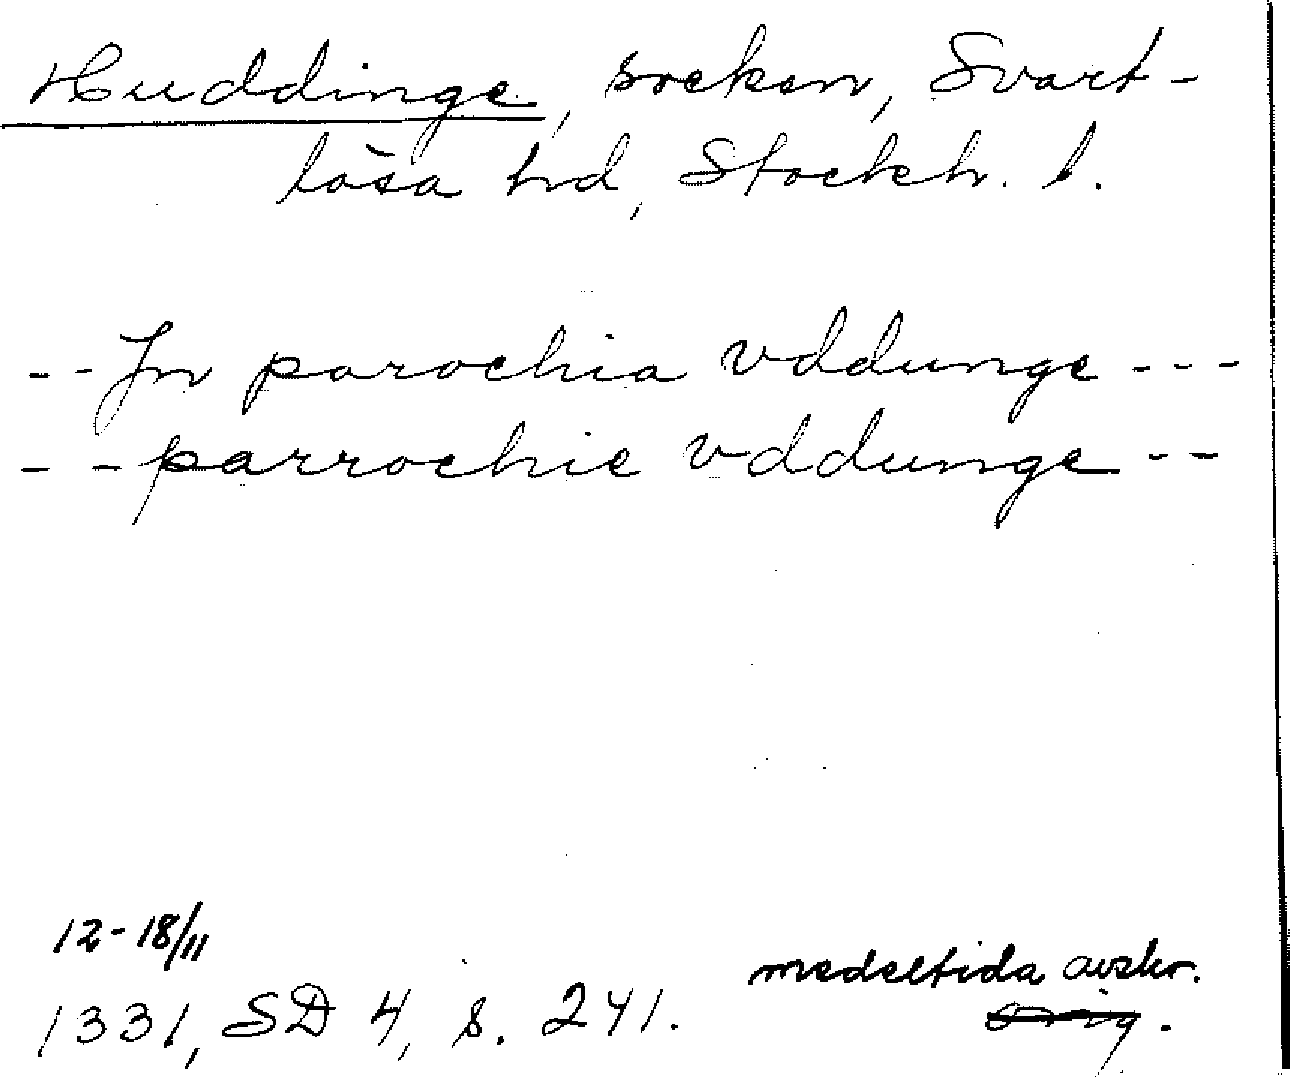 Huddinge, socken, Svart-
lösa hd, Stockh. l.
-- Jn parochia vddunge ---
-- parrochie vddunge --
12-18/11
medeltida avskr.
1331, SD 4, s. 241.
Orig.